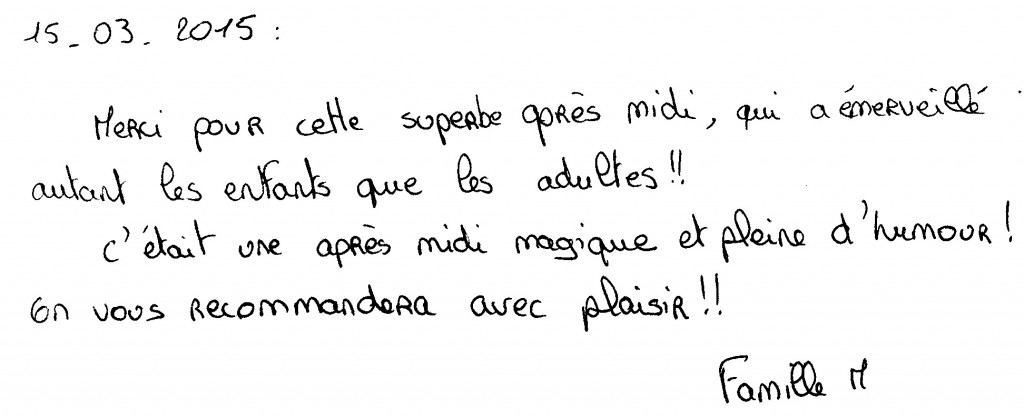 15-03-2015 :
Merci pour cette superbe après midi, qui a émerveillé
autant les enfants que les adultes !!
C'était une après midi magique et pleine d'humour !
On vous recommandera avec plaisir !!
Famille M